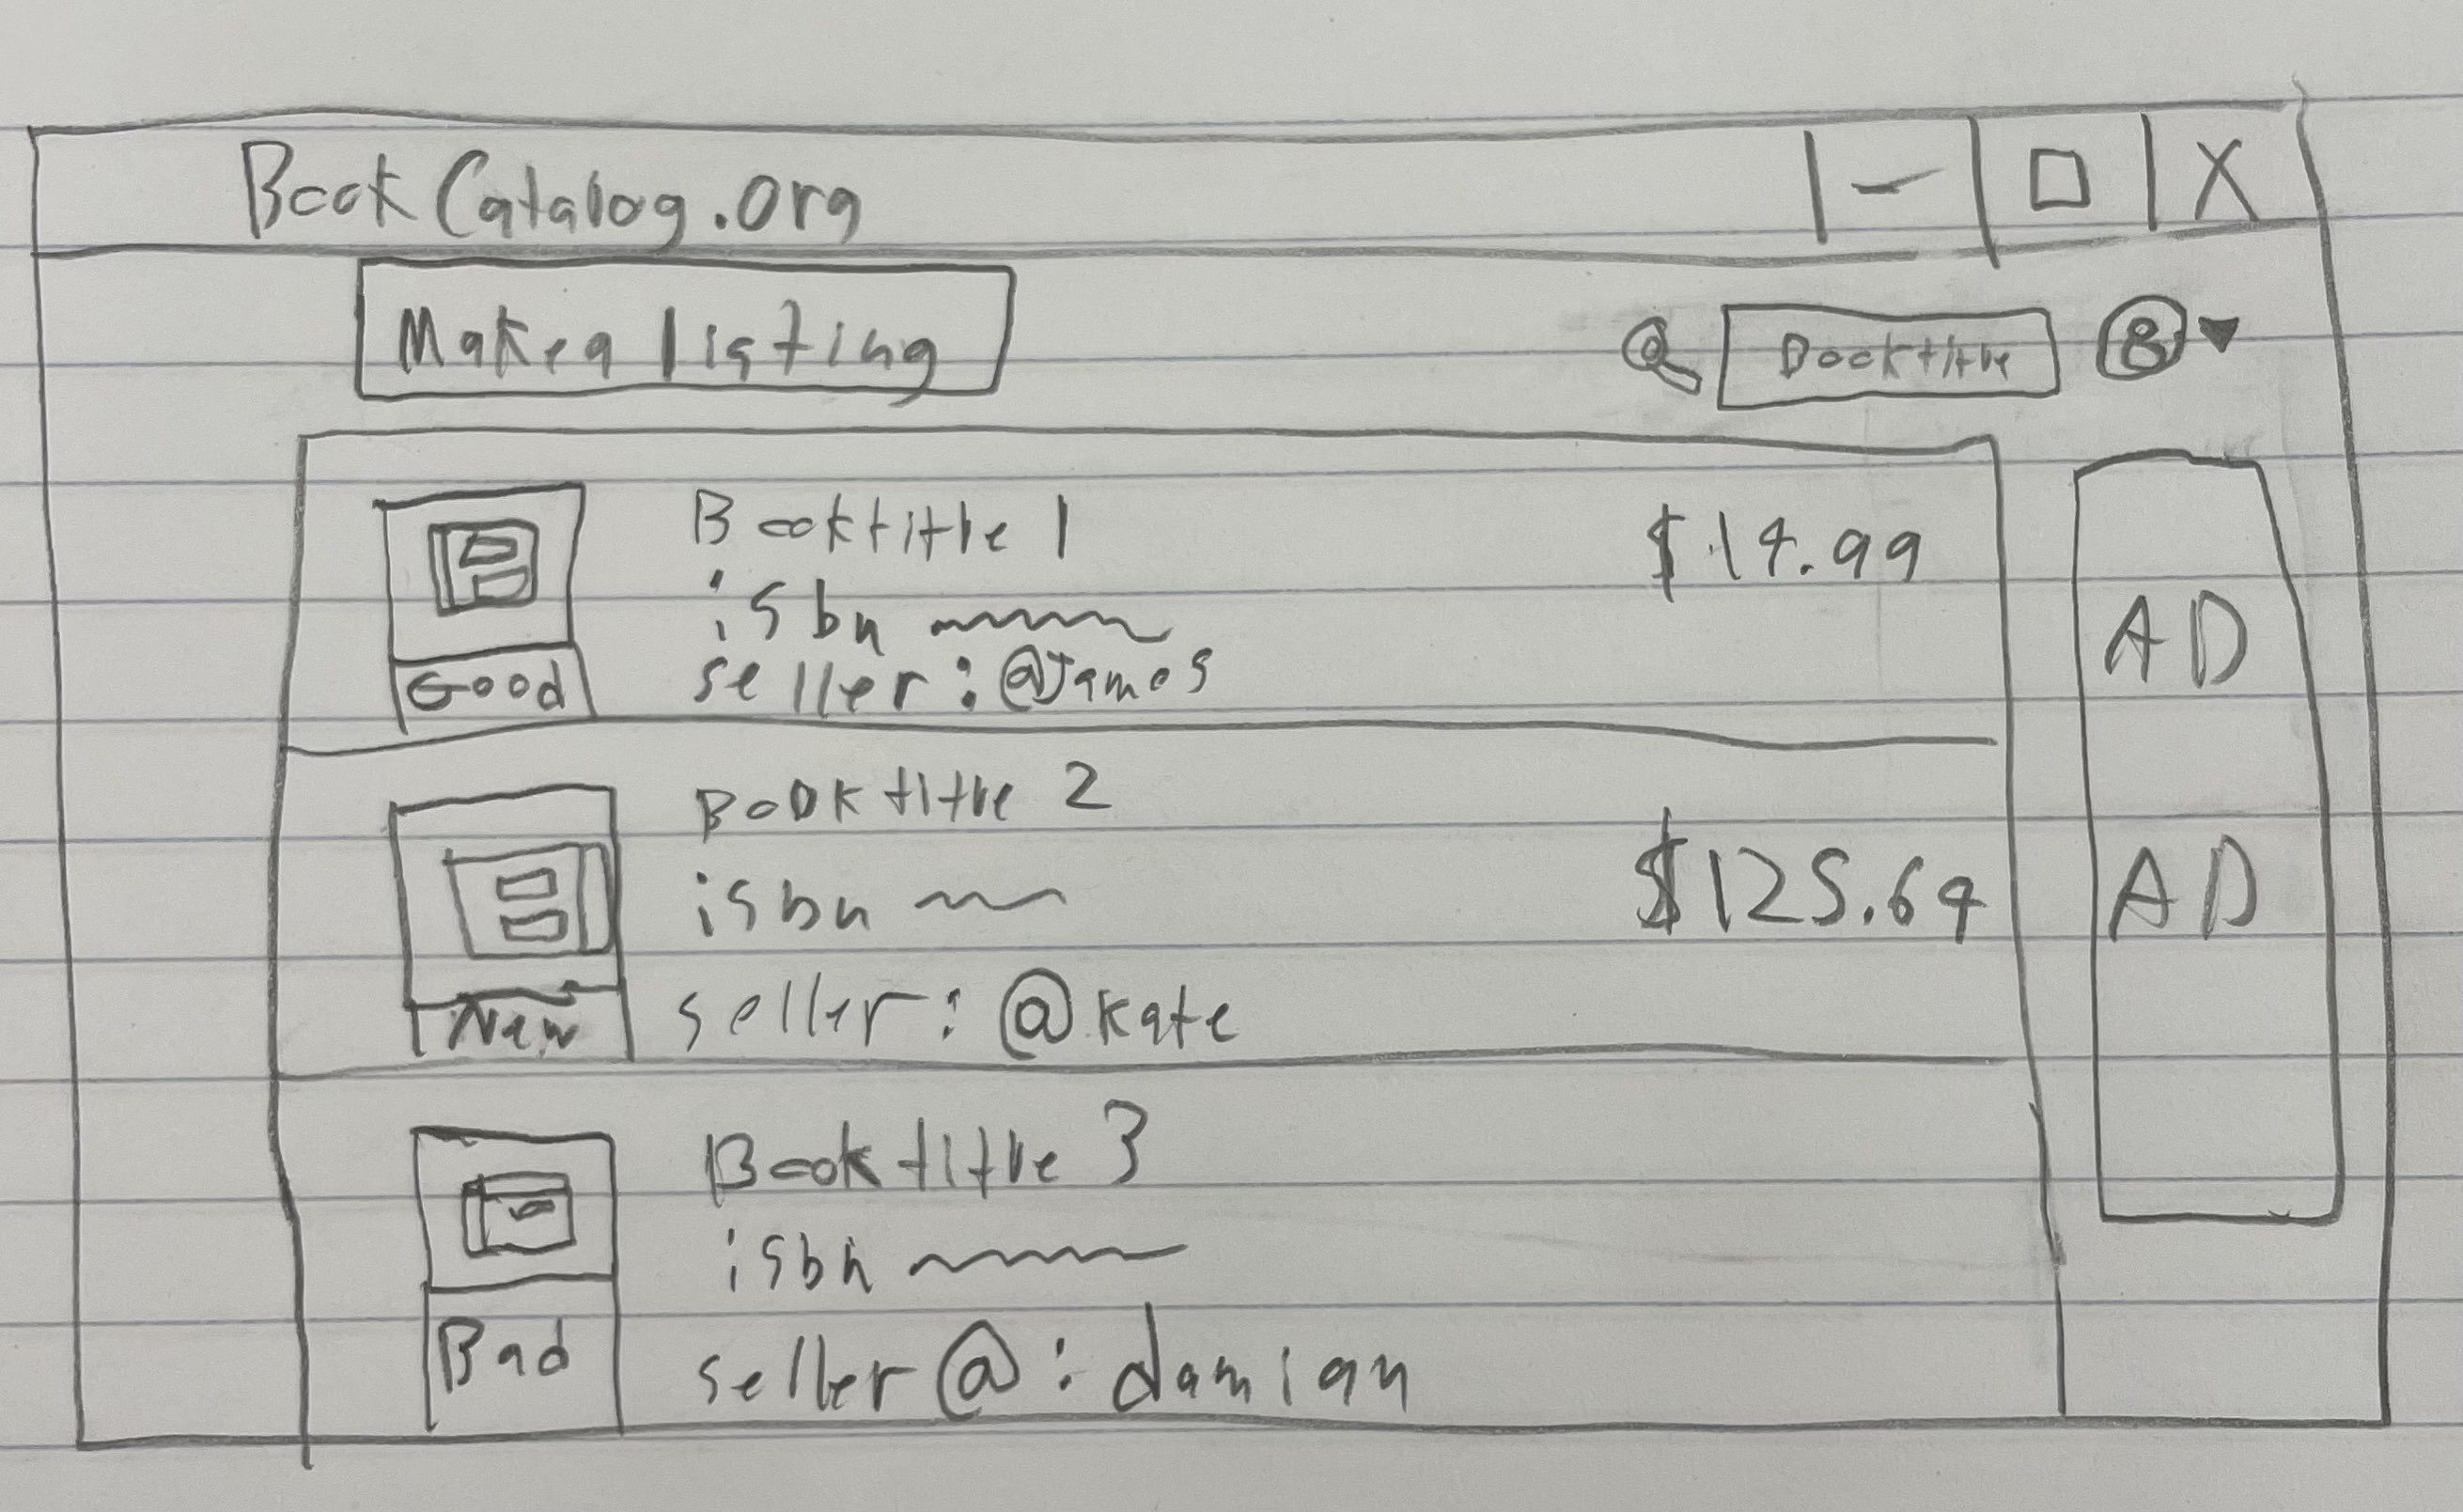 BookCatalog.org
Make a listing
Booktitle
Booktitle 1
$14.99
isbn
seller: @James
Good
Booktitle 2
isbn
$125.64
seller: @kate
New
Booktitle 3
isbn
seller@: damian
Bad
AD
AD